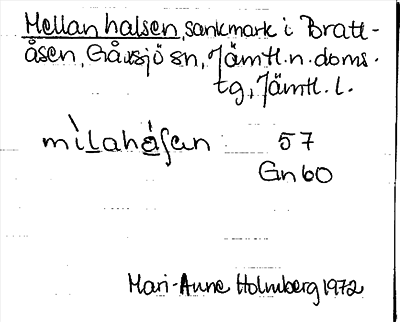 Mellanhalsen, sankmark i Bratt-
åsen, Gåxsjö sn, Jämtl. n. doms.
tg, Jämtl. l.
mìlaháʃen 57
Gn60
Mari-Anne Holmberg 1972